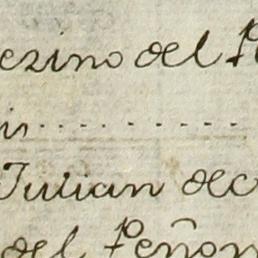 ezino del P
in..........
Julian dec
del Peñon